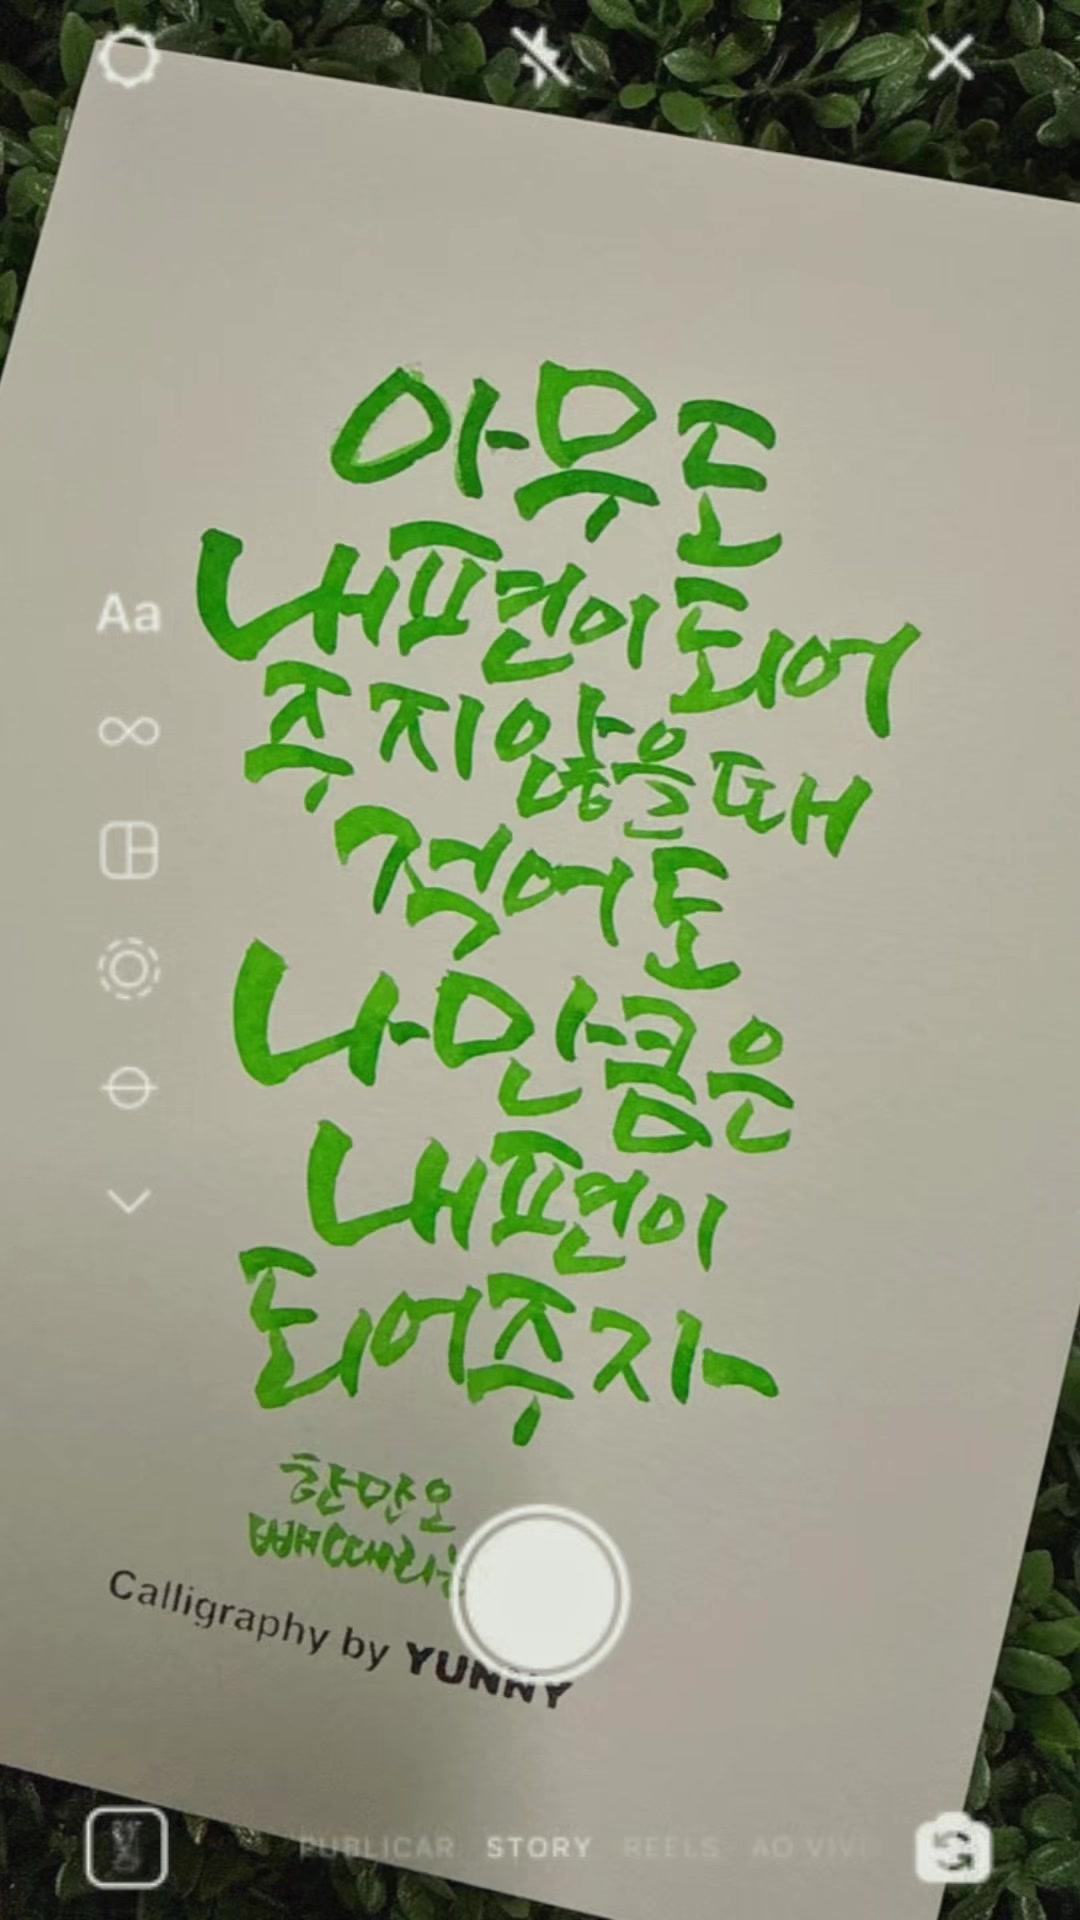 Aa
아무도
내편이 되어
주지 않을 때
적어도
나만큼은
내편이
되어주자
한만오
Calligraphy by YUNNY
PUBLICAR STORY REELS AO VIVO